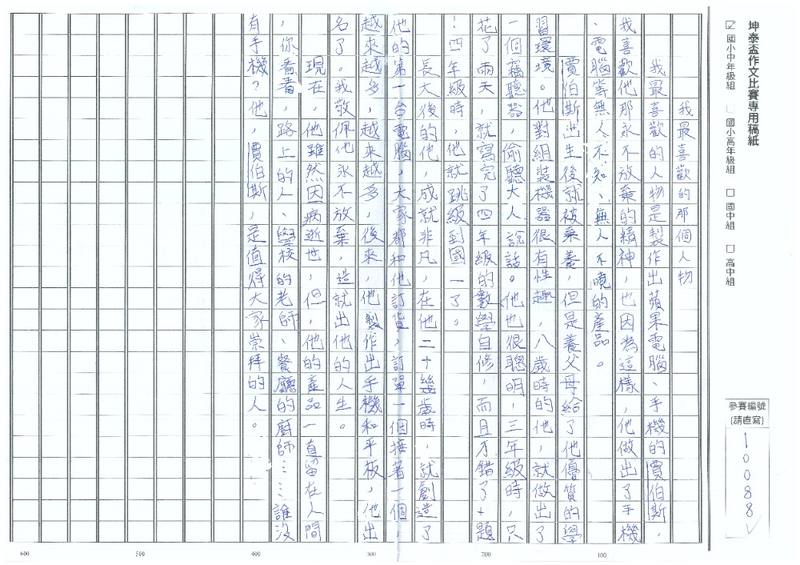 坤泰盃作文比賽專用稿紙
☑ 國小中年級組 □ 國小高年級組 □ 國中組 □ 高中組
參賽編號
(請直寫)
10088
我最喜歡的那個人物
我最喜歡的人物是製作出蘋果電腦、手機的賈伯斯,
我喜歡他那永不放棄的精神,也因為這樣,他做出了手機
、電腦等無人不知、無人不曉的產品。
賈伯斯出生後就被棄養,但是養父母給了他優質的學
習環境。他對組裝機器很有性趣,八歲時的他,就做出了
一個竊聽器,偷聽大人說話。他也很聰明,三年級時,只
花了兩天,就寫完了四年級的數學自修,而且才錯了十題
!四年級時,他就跳級到國一了。
長大後的他,成就非凡,在他二十幾歲時,就創造了
他的第一台電腦,大家都和他訂貨,訂單一個接著一個,
越來越多,越來越多,後來,他製作出手機和平板,他出
名了。我敬佩他永不放棄,造就出他的人生。
現在,他雖然因病逝世,但,他的產品一直留在人間
,你看看,路上的人、學校的老師、餐廳的廚師……誰沒
有手機?他,賈伯斯,是值得大家崇拜的人。
600 500 400 300 200 100